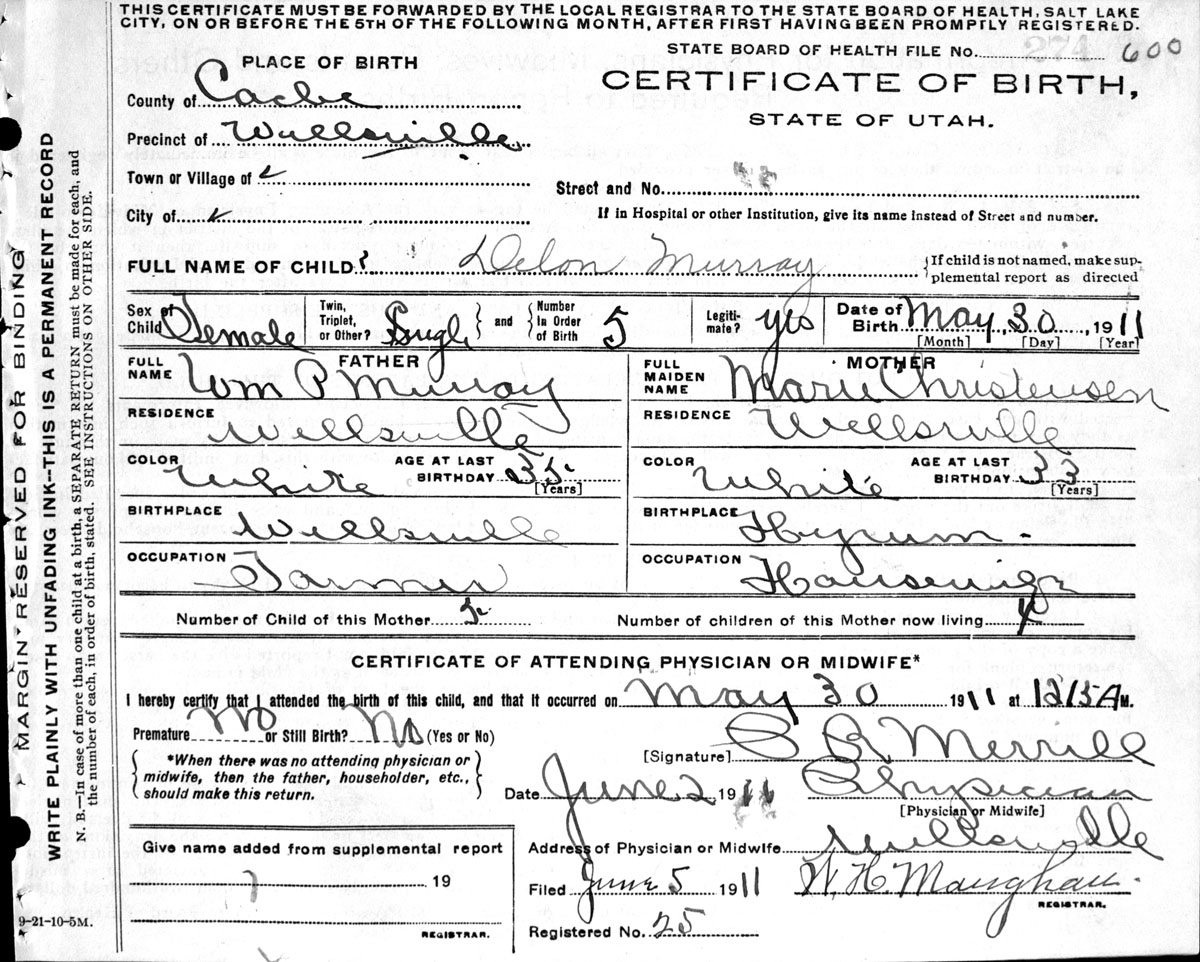 THIS CERTIFICATE MUST BE FORWARDED BY THE LOCAL REGISTRAR TO THE STATE BOARD OF HEALTH, SALT LAKE
CITY, ON OR BEFORE THE 5TH OF THE FOLLOWING MONTH, AFTER FIRST HAVING BEEN PROMPTLY REGISTERED.
STATE BOARD OF HEALTH FILE NO. 274 600
PLACE OF BIRTH
CERTIFICATE OF BIRTH,
STATE OF UTAH.
County of Cache
Precinct of Wellsville
Town or Village of
Street and No.
City of
If in Hospital or other Institution, give its name instead of Street and number.
FULL NAME OF CHILD { Delon Murray { If child is not named, make sup-
plemental report as directed
Sex of Child Female Twin, Triplet, or Other? Singl } and { Number In Order of Birth 5 Legiti-mate? yes Date of Birth May 30, 1911
[Month] [Day] [Year]
FATHER
FULL NAME Wm P Murray
RESIDENCE Wellsville
COLOR White AGE AT LAST BIRTHDAY 35 [Years]
BIRTHPLACE Wellsville
OCCUPATION Farmer
MOTHER
FULL MAIDEN NAME Marie Christensen
RESIDENCE Wellsville
COLOR White AGE AT LAST BIRTHDAY 33 [Years]
BIRTHPLACE Hyrum
OCCUPATION Housewife
Number of Child of this Mother 5 Number of children of this Mother now living 4
CERTIFICATE OF ATTENDING PHYSICIAN OR MIDWIFE*
I hereby certify that I attended the birth of this child, and that it occurred on May 30 1911 at 1215 A M.
Premature No or Still Birth? No (Yes or No)
*When there was no attending physician or
midwife, then the father, householder, etc.,
should make this return.
[Signature] Merrill
Date June 2 1911 Physician
[Physician or Midwife]
Address of Physician or Midwife Wellsville
Filed June 5 1911 W. H. Maughan.
REGISTRAR.
Registered No. 25
Give name added from supplemental report
19
REGISTRAR.
9-21-10-5M.
MARGIN RESERVED FOR BINDING
WRITE PLAINLY WITH UNFADING INK--THIS IS A PERMANENT RECORD
N. B.—In case of more than one child at a birth, a SEPARATE RETURN must be made for each, and
the number of each, in order of birth, stated. SEE INSTRUCTIONS ON OTHER SIDE.